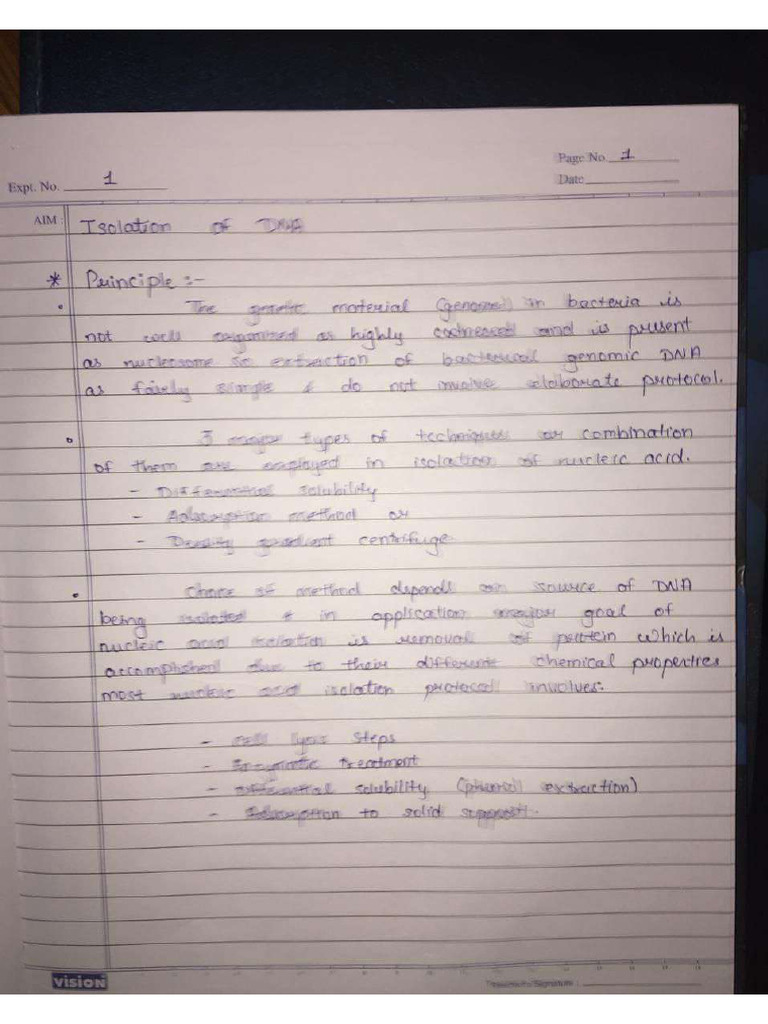 Page No. 1
Expt. No. 1
Date
AIM : Isolation of DNA
* Principle :-
• The genetic material (genome) in bacteria is
not well organized as highly and is present
as nucleosome so extraction of bacterial genomic DNA
as fairly simple & do not involve elaborate protocol.
• 3 major types of techniques or combination
of them are employed in isolation of nucleic acid.
- Differential solubility
- Adsorption method or
- Density gradient centrifuge
• Choice of method depends on source of DNA
being isolated & in application major goal of
nucleic acid isolation is removal of protein which is
accomplished due to their different chemical properties
most nucleic acid isolation protocol involves:
- Cell lysis steps
- Enzymatic treatment
- Differential solubility (phenol extraction)
- Adsorption to solid support.
vision
Signature :